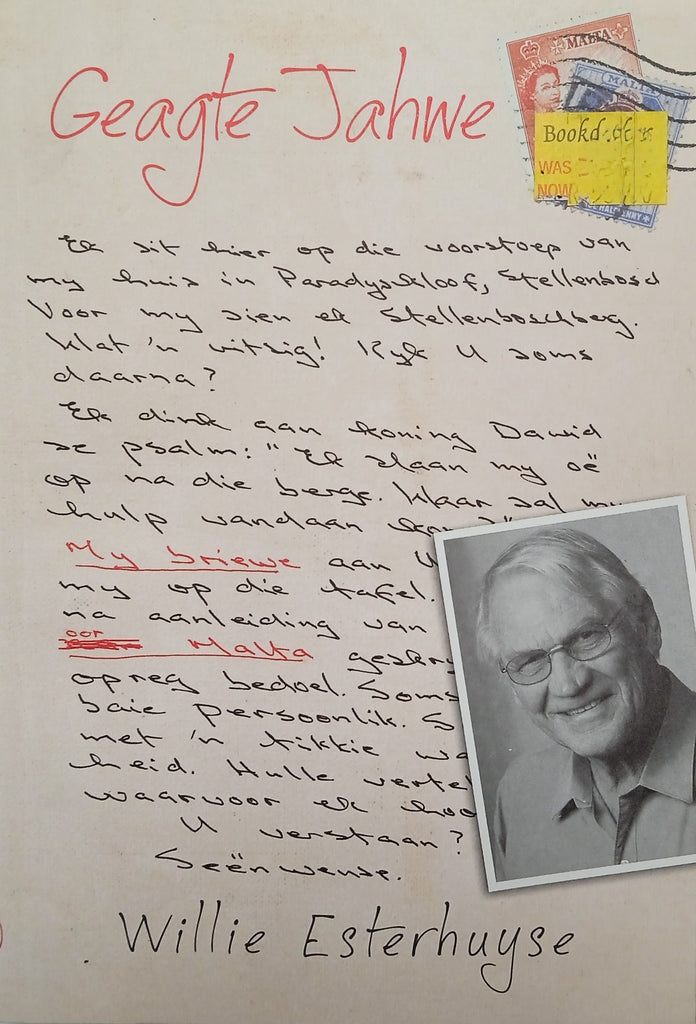 Geagte Jahwe
MALTA
MALTA
WAS
NOW
Ek sit hier op die voorstoep van
my huis in Paradyskloof, Stellenbosch
Voor my sien ek Stellenboschberg.
Wat 'n uitsig! Kyk U soms
daarna?
Ek dink aan koning Dawid
se psalm: "Ek slaan my oë
op na die berge. Waar sal my
hulp vandaan
My briewe aan U
my op die tafel.
na aanleiding van
oor
Malta
opreg bedoel. Soms
baie persoonlik.
met 'n tikkie
heid. Hulle
waarvoor ek
U verstaan?
Seënwense.
Willie Esterhuyse